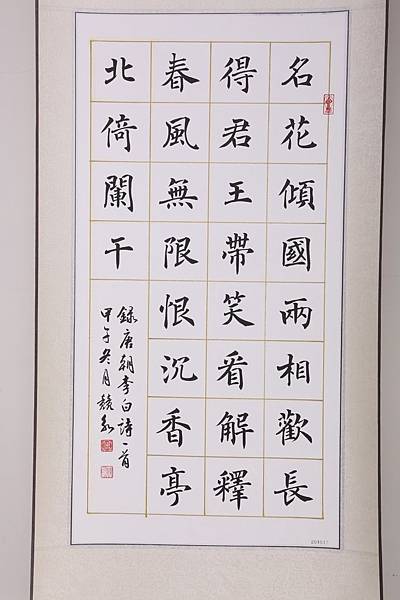 名花傾國兩相歡長
得君王帶笑看解釋
春風無限恨沉香亭
北倚闌干
錄唐朝李白詩一首
甲午冬月